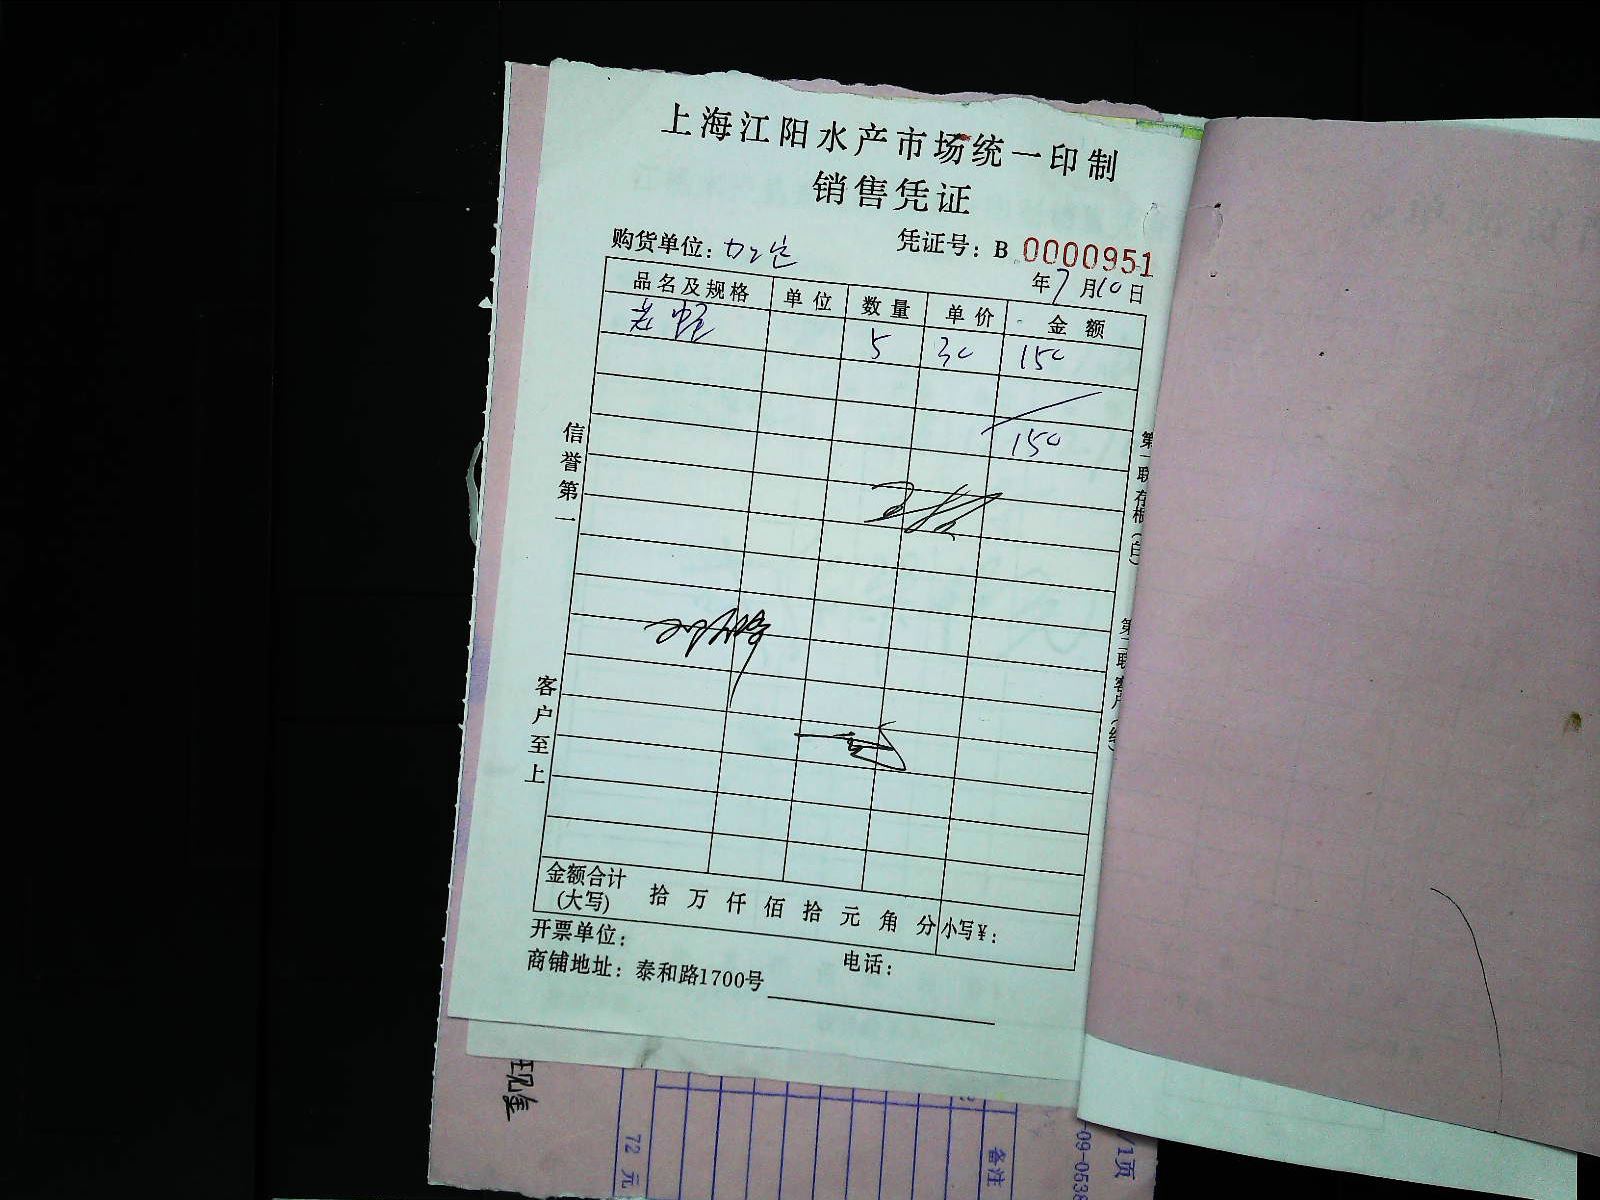 上海江阳水产市场统一印制
销售凭证
购货单位：
凭证号：B 0000951
年7月10日
品名及规格 单位 数量 单价 金额
老 5 30 150
150
信誉第一
客户至上
第一联 存根（白）
第二联 客户（红）
金额合计(大写) 拾 万 仟 佰 拾 元 角 分 小写¥：
开票单位：
电话：
商铺地址：泰和路1700号
72 元
备注
-09-0538
/1页